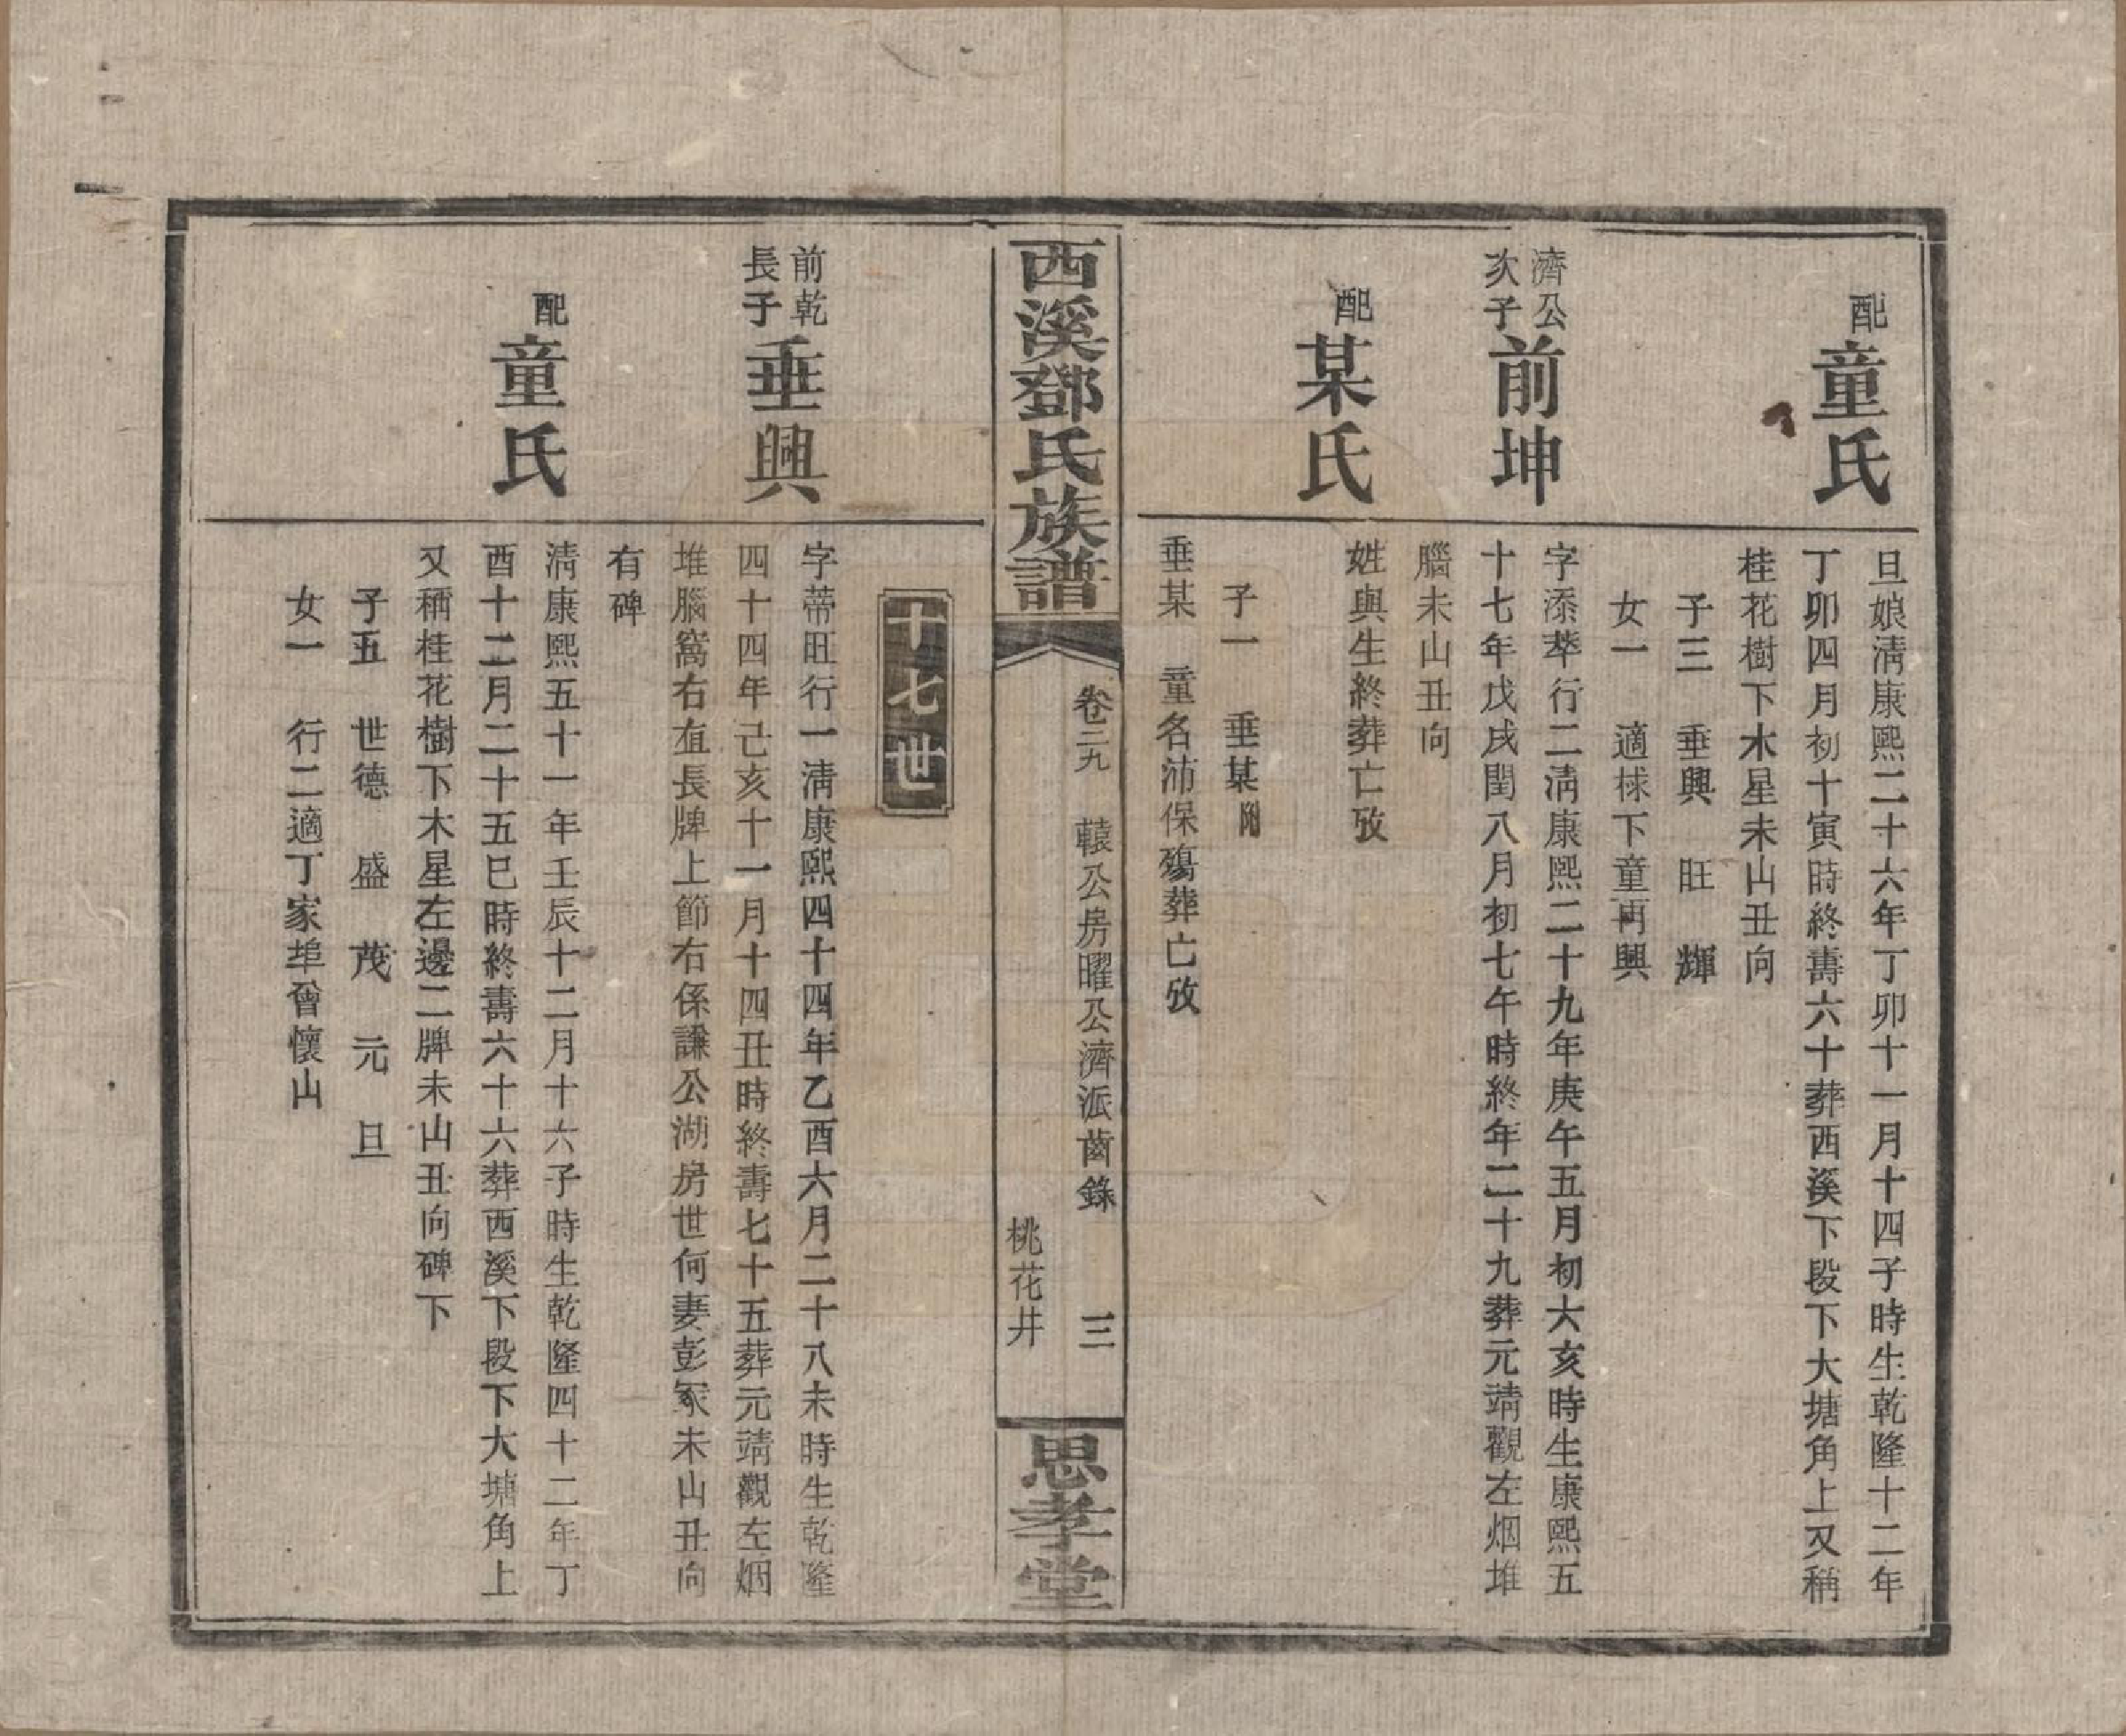 配
童氏
旦娘清康熙二十六年丁卯十一月十四子時生乾隆十二年
丁卯四月初十寅時終壽六十葬西溪下段下大塘角上又稱
桂花樹下木星未山丑向
子三　垂興　旺　輝
女一　適梂下童再興
濟公
次子
前坤
字添萃行二清康熙二十九年庚午五月初六亥時生康熙五
十七年戊戌閏八月初七午時終年二十九葬元靖觀左烟堆
腦未山丑向
配
某氏
姓與生終葬亡攷
子一　垂某附
垂某　童名沛保殤葬亡攷
西溪鄧氏族譜
卷二九　轅公房曜公濟派齒錄　三
桃花井
思孝堂
十七世
前乾
長子
垂興
字蒂旺行一清康熙四十四年乙酉六月二十八未時生乾隆
四十四年己亥十一月十四丑時終壽七十五葬元靖觀左烟
堆腦窩右直長牌上節右係謙公湖房世何妻彭冢未山丑向
有碑
配
童氏
清康熙五十一年壬辰十二月十六子時生乾隆四十二年丁
酉十二月二十五巳時終壽六十六葬西溪下段下大塘角上
又稱桂花樹下木星左邊二牌未山丑向碑下
子五　世德　盛　茂　元　旦
女一　行二適丁家埠曾懷山